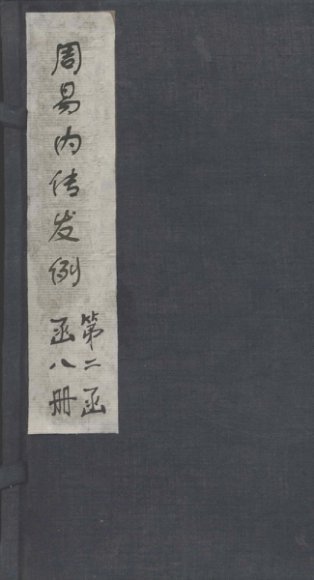 周易内传发例
第二函
函八册